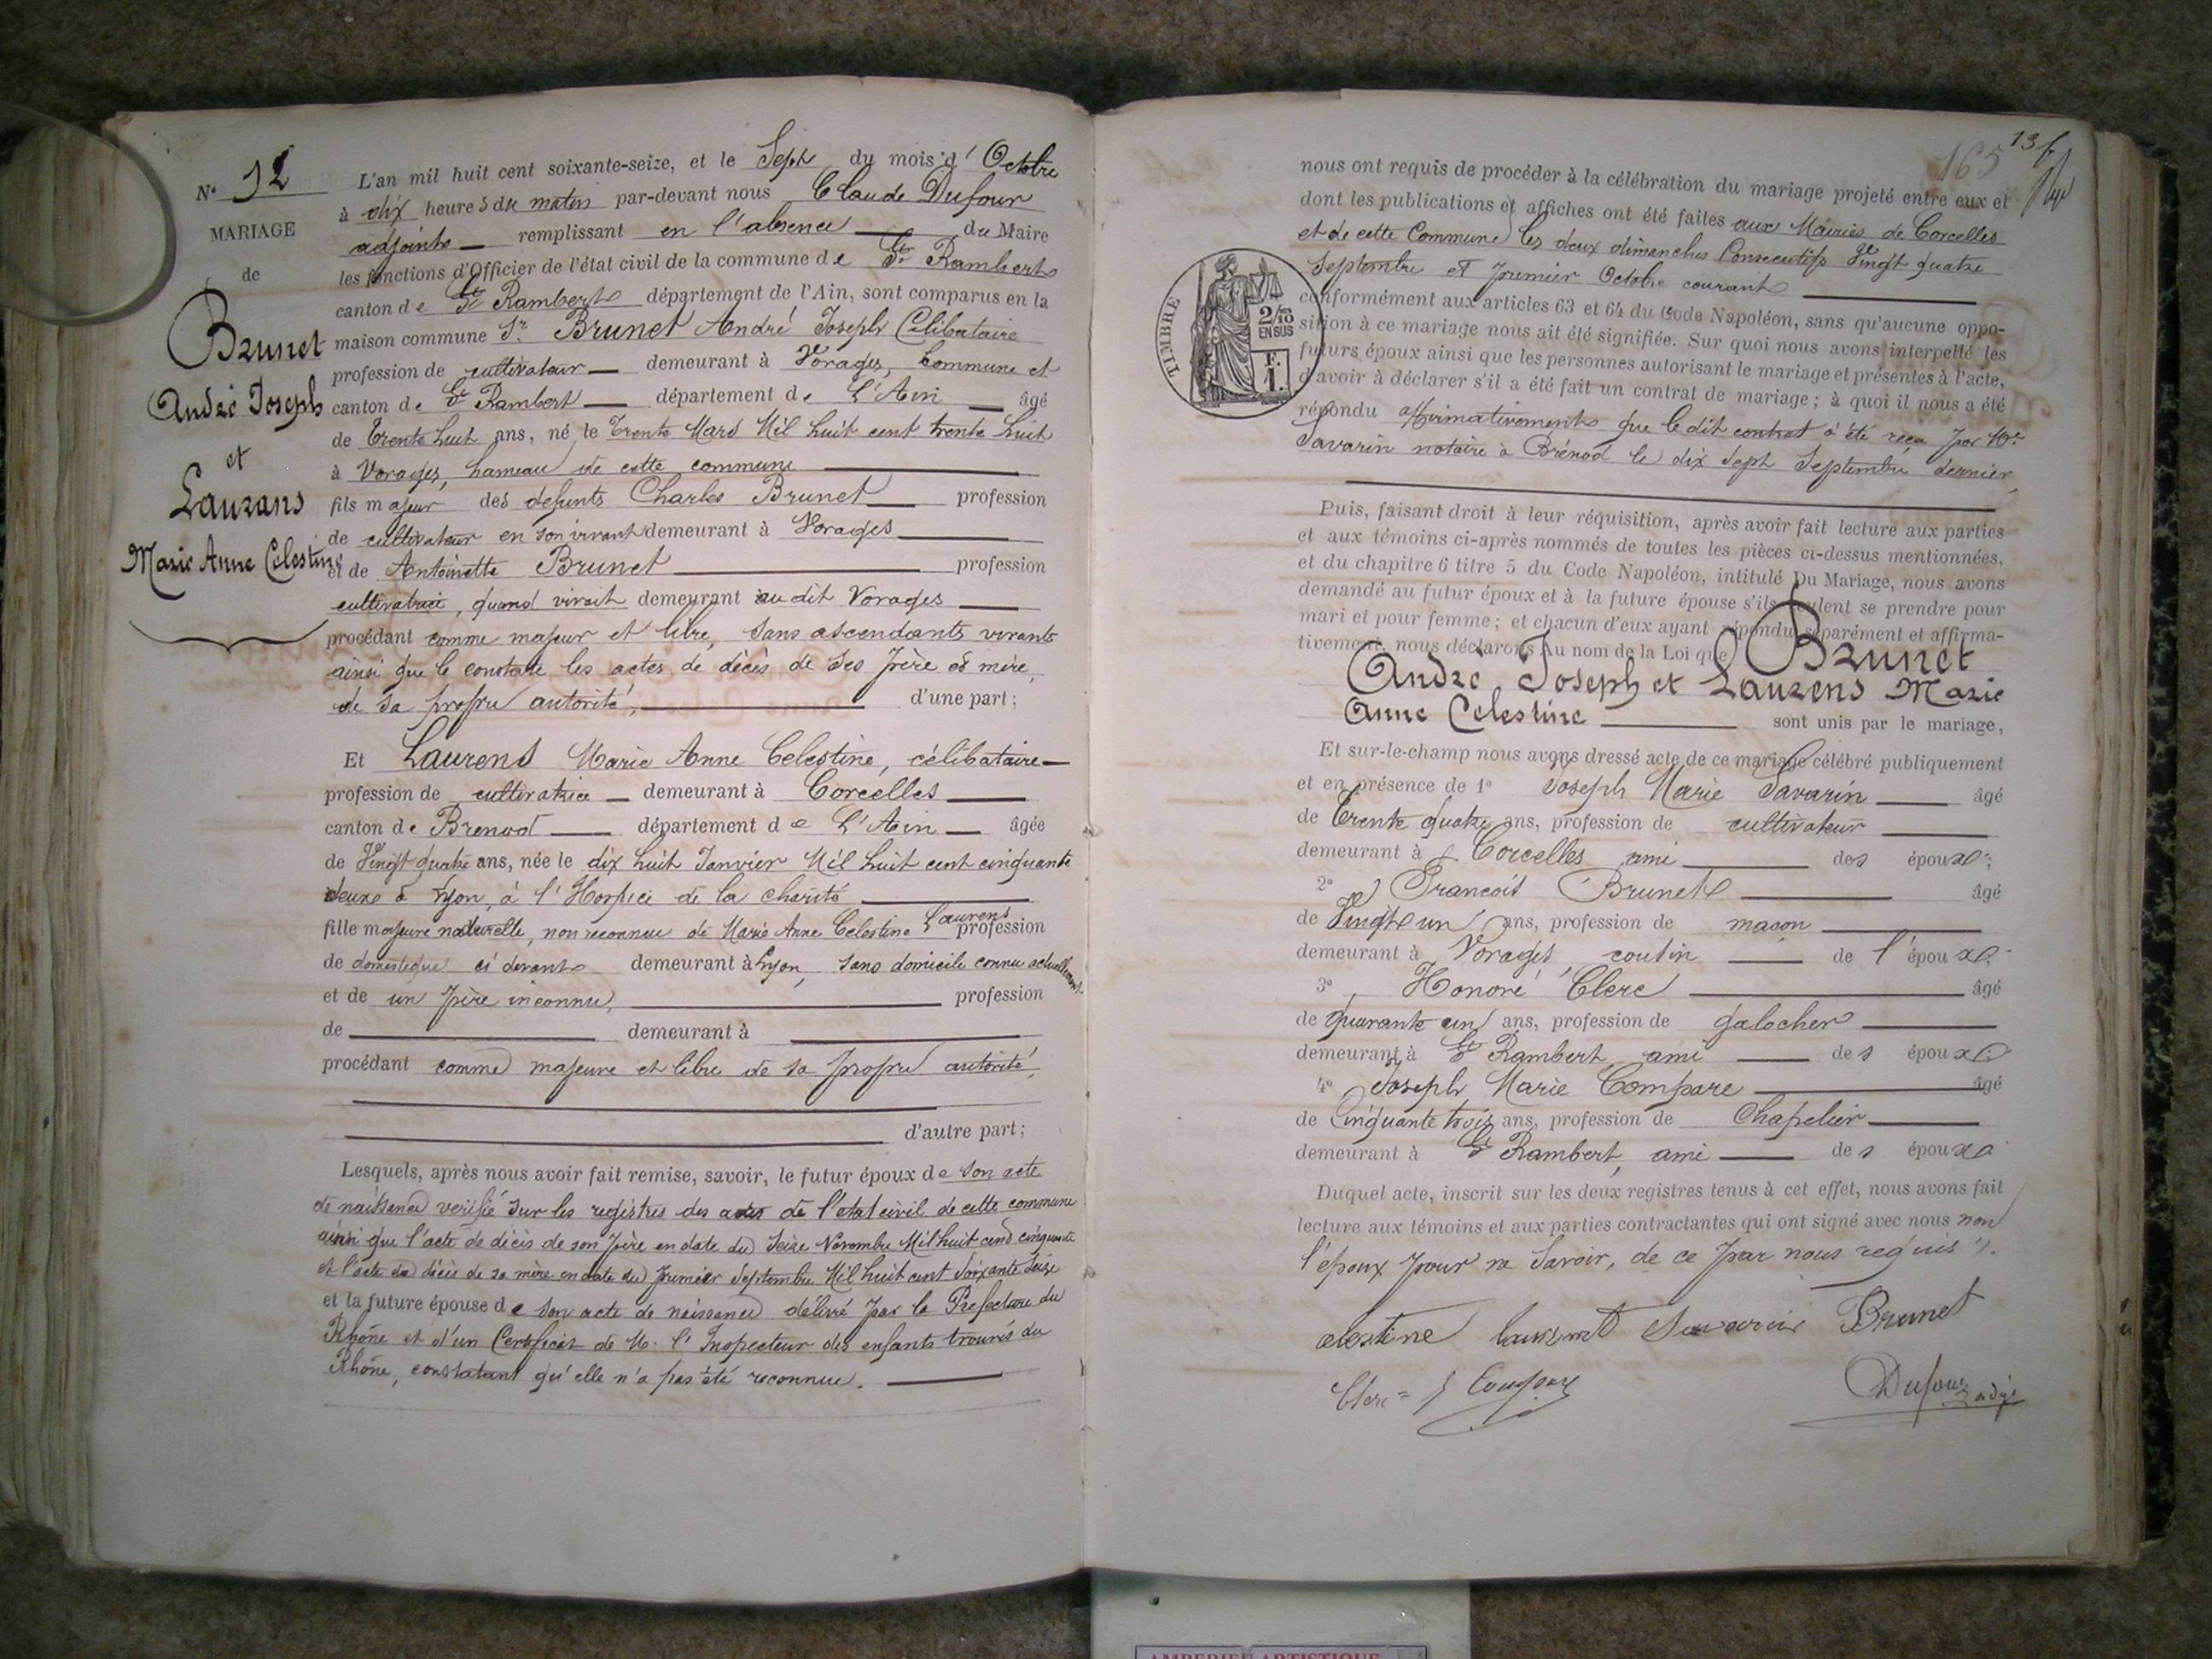 N° 12
MARIAGE
de
Brunet
André Joseph
et
Laurans
Marie Anne Celestine
L'an mil huit cent soixante-seize, et le Sept du mois d' Octobre
à dix heures du matin par-devant nous Claude Dufour
adjoint remplissant en l'absence du Maire
les fonctions d'Officier de l'état civil de la commune de St Rambert
canton de St Rambert département de l'Ain, sont comparus en la
maison commune Sr. Brunet André Joseph Célibataire
profession de cultivateur demeurant à Vorages, Commune et
canton de St Rambert département de L'Ain âgé
de Trente huit ans, né le Trente Mars Mil huit cent trente huit
à Vorages, hameau de cette commune
fils majeur des defunts Charles Brunet profession
de cultivateur en son vivant demeurant à Vorages
et de Antoinette Brunet profession
cultivatrice, quand vivait demeurant au dit Vorages
procédant comme majeur et libre, sans ascendants vivants
ainsi que le constate les actes de décès de ses père et mère,
de sa propre autorité, d'une part;
Et Laurens Marie Anne Celestine, célibataire
profession de cultivatrice demeurant à Corcelles
canton de Brenod département de L'Ain âgée
de Vingt quatre ans, née le dix huit Janvier Mil huit cent cinquante
deux à Lyon, à l'Hospice de la charité
fille majeure naturelle, non reconnue de Marie Anne Celestine Laurens profession
de domestique ci devant demeurant à Lyon, sans domicile connu actuellement
et de un père inconnu, profession
de demeurant à
procédant comme majeure et libre de sa propre autorité,
d'autre part;
Lesquels, après nous avoir fait remise, savoir, le futur époux de son acte
de naissance verifié sur les registres des actes de l'etat civil de cette commune
ainsi que l'acte de décès de son père en date du Seize Novembre Mil huit cent cinquante
et l'acte de décès de sa mère en date du premier Septembre Mil huit cent Soixante Seize
et la future épouse de son acte de naissance délivré par la Prefecture du
Rhône et d'un Certificat de Mr l'Inspecteur des enfants trouvés du
Rhône, constatant qu'elle n'a pas été reconnue.
165 136
nous ont requis de procéder à la célébration du mariage projeté entre eux et
dont les publications et affiches ont été faites aux Mairies de Corcelles
et de cette Commune les deux dimanches Consecutifs Vingt quatre
Septembre et premier Octobre courant
TIMBRE
2/10 EN SUS
F. 1.
conformément aux articles 63 et 64 du Code Napoléon, sans qu'aucune oppo-
sition à ce mariage nous ait été signifiée. Sur quoi nous avons interpellé les
futurs époux ainsi que les personnes autorisant le mariage et présentes à l'acte,
d'avoir à déclarer s'il a été fait un contrat de mariage; à quoi il nous a été
répondu affirmativement que le dit contrat a été reçu par Me
Savarin notaire à Brénod le dix Sept Septembre dernier,
Puis, faisant droit à leur réquisition, après avoir fait lecture aux parties
et aux témoins ci-après nommés de toutes les pièces ci-dessus mentionnées,
et du chapitre 6 titre 5 du Code Napoléon, intitulé Du Mariage, nous avons
demandé au futur époux et à la future épouse s'ils veulent se prendre pour
mari et pour femme; et chacun d'eux ayant répondu séparément et affirma-
tivement, nous déclarons Au nom de la Loi que Brunet
André, Joseph et Laurens Marie
Anne Celestine sont unis par le mariage,
Et sur-le-champ nous avons dressé acte de ce mariage célébré publiquement
et en présence de 1° Joseph Marie Savarin âgé
de Trente quatre ans, profession de cultivateur
demeurant à Corcelles ami des époux;
2° Francois Brunet âgé
de Vingt un ans, profession de maçon
demeurant à Vorages, cousin de l'époux
3° Honoré Clerc âgé
de quarante un ans, profession de galocher
demeurant à St Rambert, ami des époux
4° Joseph Marie Compare âgé
de Cinquante trois ans, profession de Chapelier
demeurant à St Rambert, ami des époux
Duquel acte, inscrit sur les deux registres tenus à cet effet, nous avons fait
lecture aux témoins et aux parties contractantes qui ont signé avec nous non
l'époux pour ne savoir, de ce par nous requis.
celestine laurent Savarin Brunet
Clerc J Compare Dufour adjt
AMBERIEU ARTISTIQUE